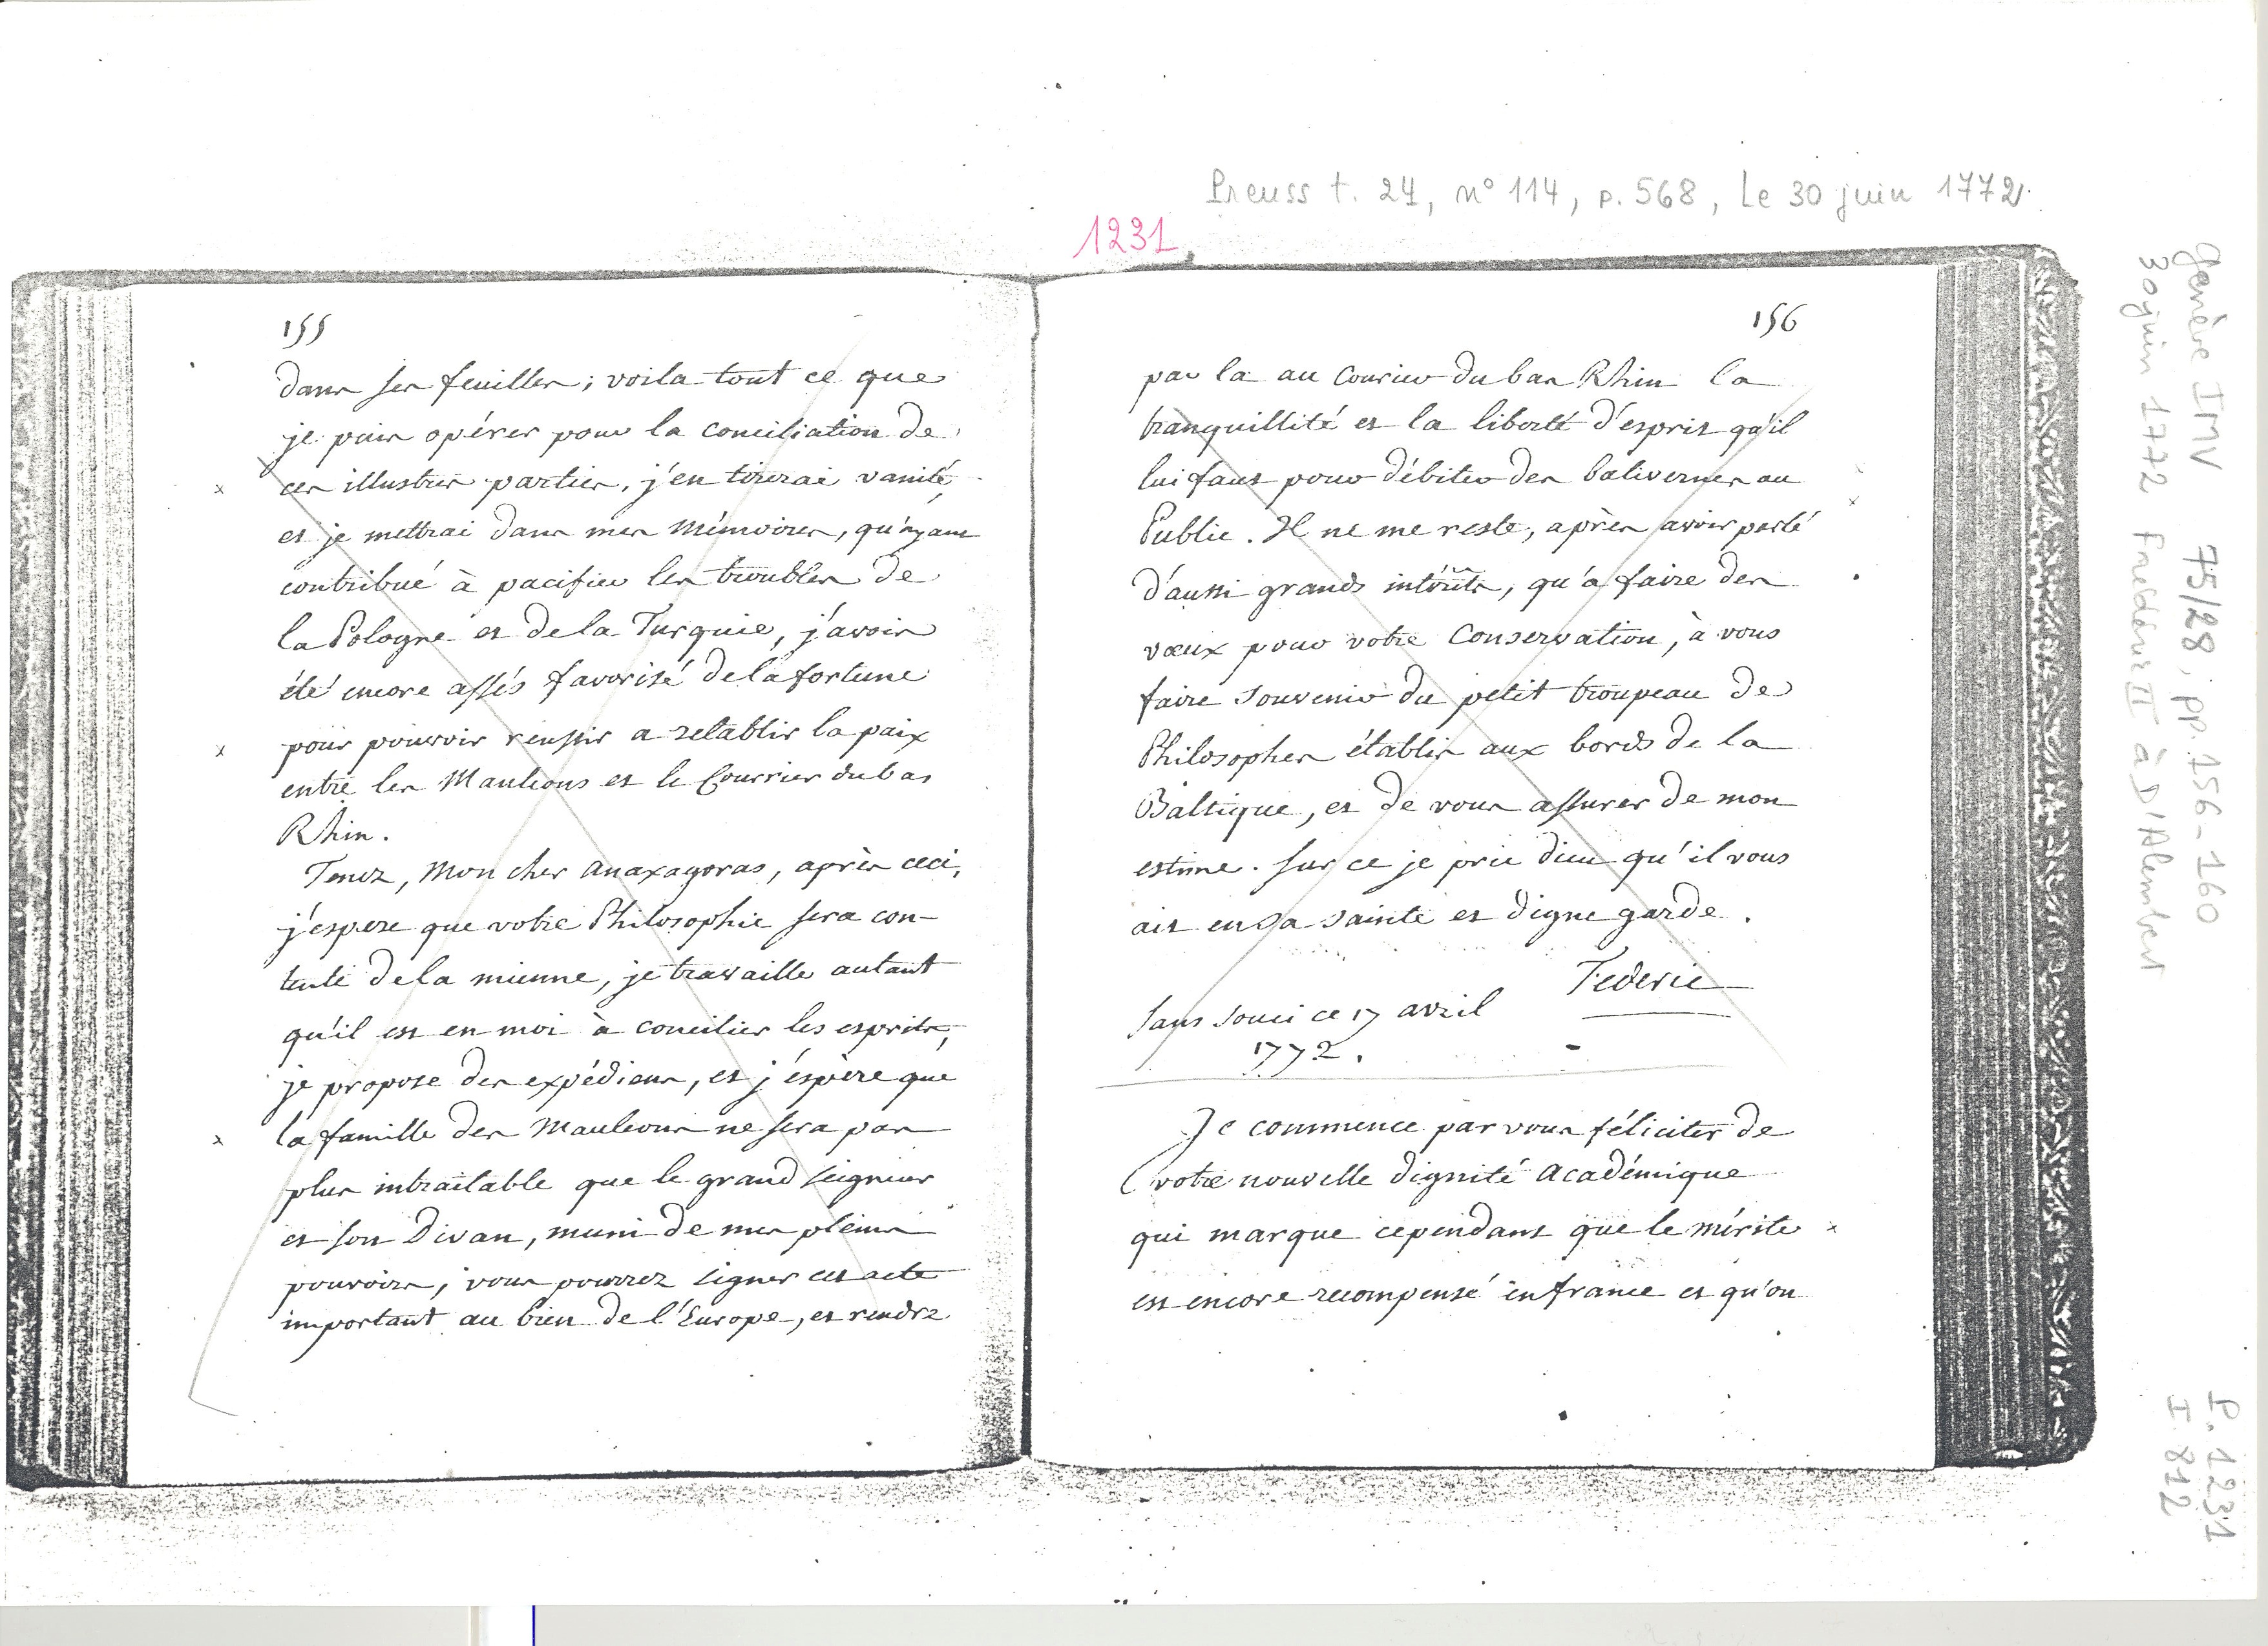 Preuss t. 24, n° 114, p. 568, Le 30 juin 1772.
1231
155
dans ses feuilles; voila tout ce que
je puis opérer pour la conciliation de
ces illustres parties, j'en tirerai vanité,
et je mettrai dans mes Mémoires, qu'ayant
contribué à pacifier les troubles de
la Pologne et de la Turquie, j'avois
été encore assés favorisé de la fortune
pour pouvoir reussir a retablir la paix
entre les Mauleons et le Courrier du bas
Rhin.
Tenez, Mon cher Anaxagoras, après ceci,
j'espere que votre Philosophie sera con-
tente de la mienne, je travaille autant
qu'il est en moi à concilier les esprits,
je propose des expédiens, et j'éspère que
la famille des Mauleons ne sera pas
plus intraitable que le grand seigneur
et son Divan, muni de mes pleins
pouvoirs, vous pourrez signer cet acte
important au bien de l'Europe, et rendre
156
par la au Courier du bas Rhin la
tranquillité et la liberté d'esprit qu'il
lui faut pour débiter des balivernes au
Public. Il ne me reste, après avoir parlé
d'aussi grands intérêts, qu'a faire des
vœux pour votre Conservation, à vous
faire souvenir du petit troupeau de
Philosophes établis aux bords de la
Baltique, et de vous assurer de mon
estime. sur ce je prie dieu qu'il vous
ait en sa sainte et digne garde.
Federic
Sans Souci ce 17 avril
1772.
Je commence par vous féliciter de
votre nouvelle dignité Académique
qui marque cependant que le mérite
est encore recompensé en france et qu'on
Genève IMV 75/28, pp. 156-160
30 juin 1772 Frédéric II à D'Alembert
P. 1231
I 812